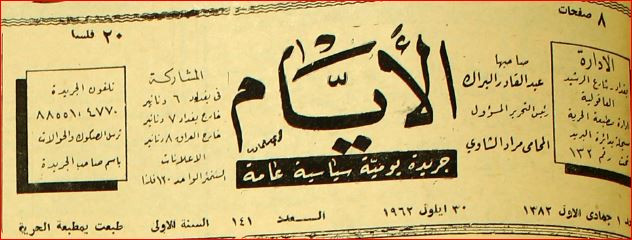 ٨ صفحات
٢٠ فلسا
الادارة
بغداد - شارع الرشيد
العاقولية
ادارة مطبعة الحرية
مسجلة بدائرة البريد
تحت رقم ١٣٢
صاحبها
عبد القادر البراك
رئيس التحرير المسؤول
المحامي مراد الشاوي
الأيام
جريدة يومية سياسية عامة
المشاركة
في بغداد ٦ دنانير
خارج بغداد ٧ دنانير
خارج العراق ٨ دنانير
الاعلانات
السنتمتر الواحد ١٢٠ فلسا
تلفون الجريدة
٨٨٥٥١ / ٤٧٧٠
ترسل الصكوك والحوالات
باسم صاحب الجريدة
١ جمادى الاول ١٣٨٢
٣٠ ايلول ١٩٦٢
العدد ١٤١
السنة الاولى
طبعت بمطبعة الحرية